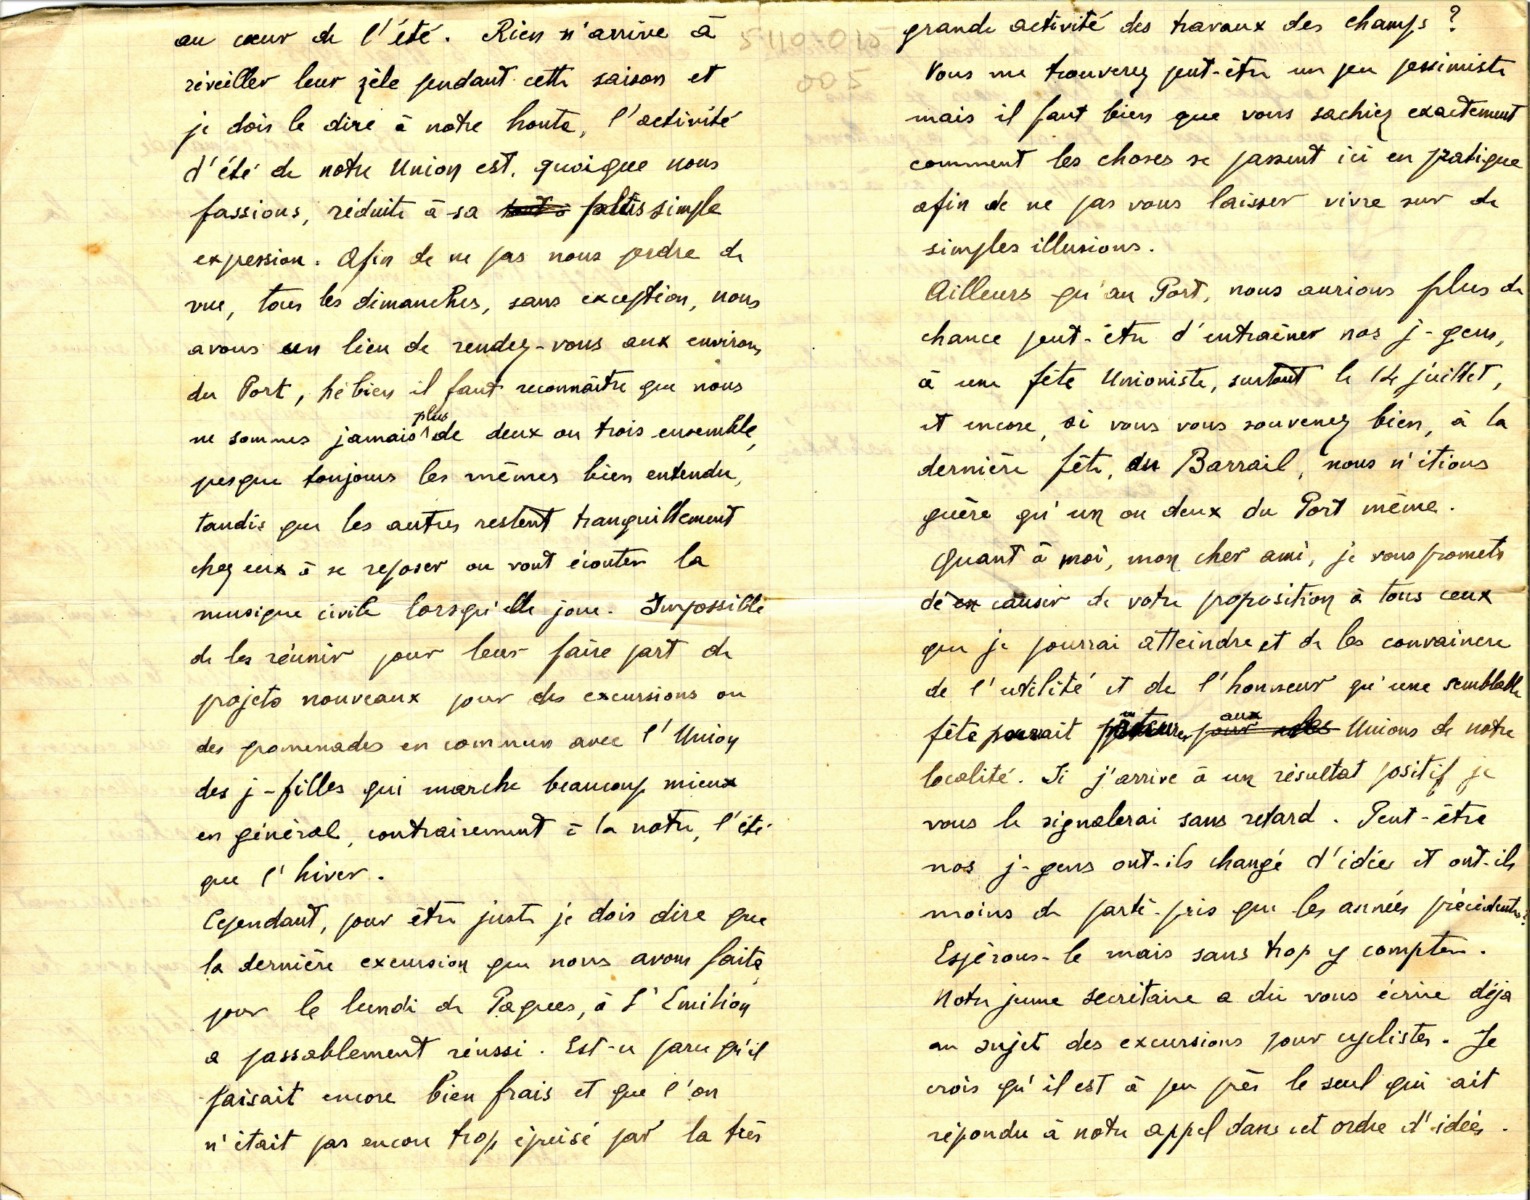 au cœur de l'été. Rien n'arrive à
réveiller leur zèle pendant cette saison et
je dois le dire à notre honte, l'activité
d'été de notre Union est, quoique nous
fassions, réduite à sa plus simple
expression. Afin de ne pas nous perdre de
vue, tous les dimanches, sans exception, nous
avons un lieu de rendez-vous aux environs
du Port, hé bien il faut reconnaître que nous
ne sommes jamais plus de deux ou trois ensemble,
presque toujours les mêmes bien entendu,
tandis que les autres restent tranquillement
chez eux à se reposer ou vont écouter la
musique civile lorsqu'elle joue. Impossible
de les réunir pour leur faire part de
projets nouveaux pour des excursions ou
des promenades en commun avec l'Union
des j-filles qui marche beaucoup mieux
en général, contrairement à la notre, l'été
que l'hiver.
Cependant, pour être juste je dois dire que
la dernière excursion que nous avons faite
pour le lundi de Pâques, à St Emilion
a passablement réussi. Est-ce parce qu'il
faisait encore bien frais et que l'on
n'était pas encore trop épuisé par la très
grande activité des travaux des champs ?
Vous me trouverez peut-être un peu pessimiste
mais il faut bien que vous sachiez exactement
comment les choses se passent ici en pratique
afin de ne pas vous laisser vivre sur de
simples illusions.
Ailleurs qu'au Port, nous aurions plus de
chance peut-être d'entraîner nos j-gens,
à une fête Unioniste, surtout le 14 juillet,
et encore, si vous vous souvenez bien, à la
dernière fête, du Barrail, nous n'étions
guère qu'un ou deux du Port même.
Quant à moi, mon cher ami, je vous promets
de causer de votre proposition à tous ceux
que je pourrai atteindre et de les convaincre
de l'utilité et de l'honneur qu'une semblable
fête pourrait procurer aux Unions de notre
localité. Si j'arrive à un résultat positif je
vous le signalerai sans retard. Peut-être
nos j-gens ont-ils changé d'idée et ont-ils
moins de parti-pris que les années précédentes ?
Espérons-le mais sans trop y compter.
Notre jeune secrétaire a dû vous écrire déja
au sujet des excursions pour cyclistes. Je
crois qu'il est à peu près le seul qui ait
répondu à notre appel dans cet ordre d'idées.